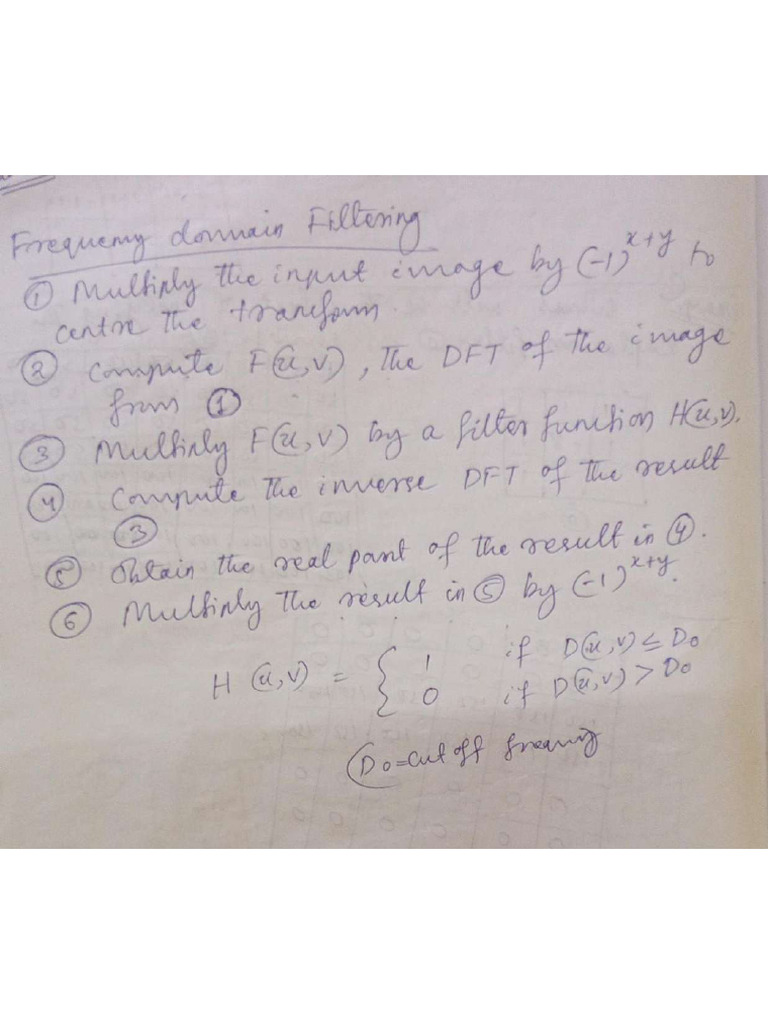 Frequency domain Filtering
① Multiply the input image by (-1)^x+y to
centre the transform.
② compute F(u,v), the DFT of the image
from ①
③ Multiply F(u,v) by a filter function H(u,v).
④ compute the inverse DFT of the result
③
⑤ Obtain the real part of the result in ④.
⑥ Multiply the result in ⑤ by (-1)^x+y.
H (u,v) = { 1 if D(u,v) ≤ Do
0 if D(u,v) > Do
(Do = cut off